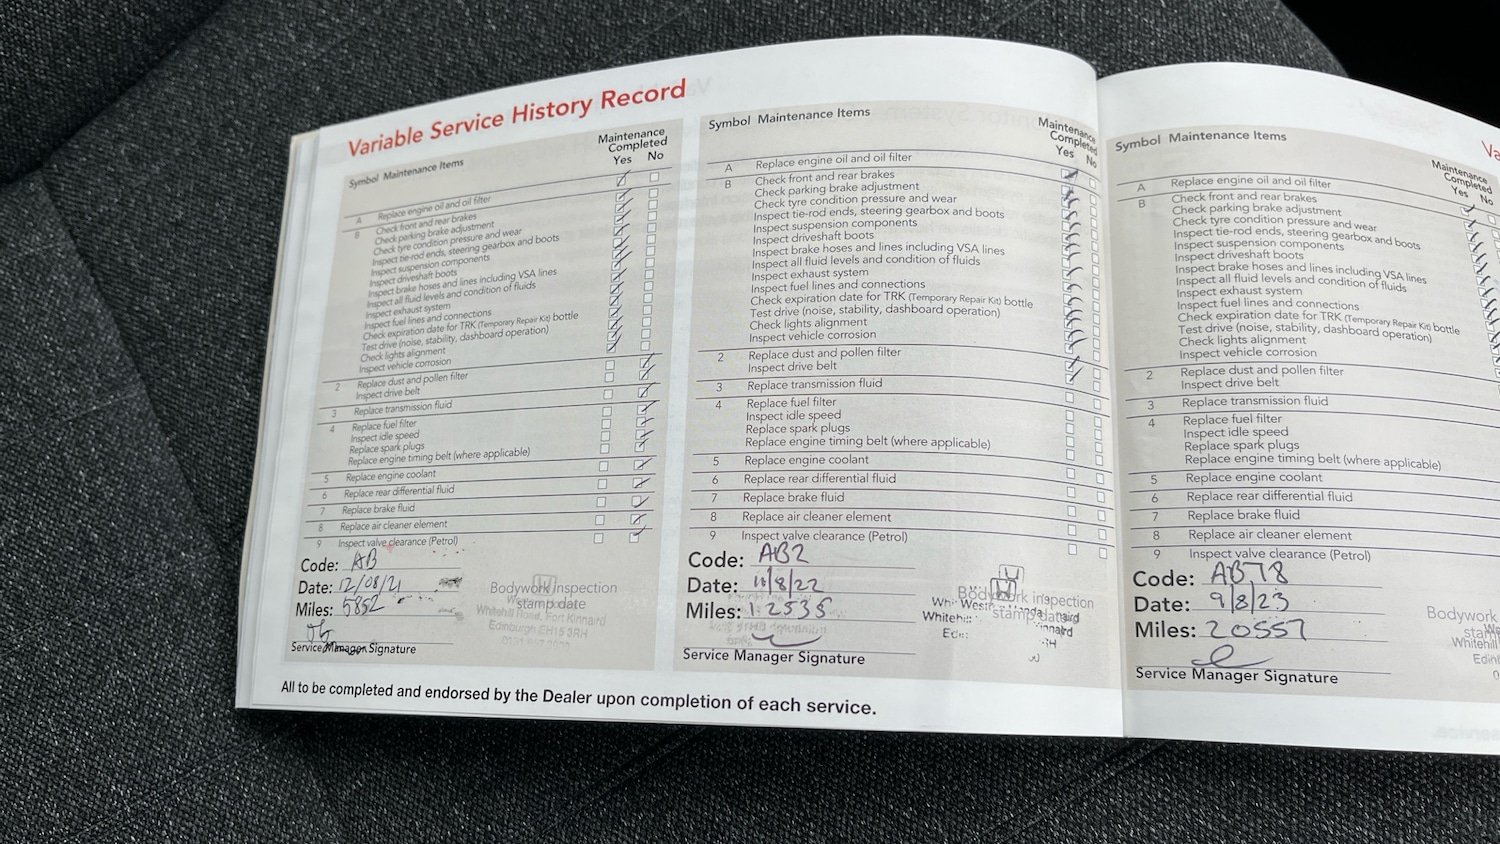 Variable Service History Record
Symbol Maintenance Items
Maintenance
Completed
Yes No
A Replace engine oil and oil filter
B Check front and rear brakes
Check parking brake adjustment
Check tyre condition pressure and wear
Inspect tie-rod ends, steering gearbox and boots
Inspect suspension components
Inspect driveshaft boots
Inspect brake hoses and lines including VSA lines
Inspect all fluid levels and condition of fluids
Inspect exhaust system
Inspect fuel lines and connections
Check expiration date for TRK (Temporary Repair Kit) bottle
Test drive (noise, stability, dashboard operation)
Check lights alignment
Inspect vehicle corrosion
2 Replace dust and pollen filter
Inspect drive belt
3 Replace transmission fluid
4 Replace fuel filter
Inspect idle speed
Replace spark plugs
Replace engine timing belt (where applicable)
5 Replace engine coolant
6 Replace rear differential fluid
7 Replace brake fluid
8 Replace air cleaner element
9 Inspect valve clearance (Petrol)
Code: AB
Date: 12/08/21
Miles: 5852
Service Manager Signature
Bodywork inspection
stamp date
Whitehill Road, Fort Kinnaird
Edinburgh EH15 3RH
All to be completed and endorsed by the Dealer upon completion of each service.
Symbol Maintenance Items
Maintenance
Completed
Yes No
A Replace engine oil and oil filter
B Check front and rear brakes
Check parking brake adjustment
Check tyre condition pressure and wear
Inspect tie-rod ends, steering gearbox and boots
Inspect suspension components
Inspect driveshaft boots
Inspect brake hoses and lines including VSA lines
Inspect all fluid levels and condition of fluids
Inspect exhaust system
Inspect fuel lines and connections
Check expiration date for TRK (Temporary Repair Kit) bottle
Test drive (noise, stability, dashboard operation)
Check lights alignment
Inspect vehicle corrosion
2 Replace dust and pollen filter
Inspect drive belt
3 Replace transmission fluid
4 Replace fuel filter
Inspect idle speed
Replace spark plugs
Replace engine timing belt (where applicable)
5 Replace engine coolant
6 Replace rear differential fluid
7 Replace brake fluid
8 Replace air cleaner element
9 Inspect valve clearance (Petrol)
Code: AB2
Date: 11/8/22
Miles: 12535
Service Manager Signature
Bodywork inspection
stamp date
Symbol Maintenance Items
Maintenance
Completed
Yes No
A Replace engine oil and oil filter
B Check front and rear brakes
Check parking brake adjustment
Check tyre condition pressure and wear
Inspect tie-rod ends, steering gearbox and boots
Inspect suspension components
Inspect driveshaft boots
Inspect brake hoses and lines including VSA lines
Inspect all fluid levels and condition of fluids
Inspect exhaust system
Inspect fuel lines and connections
Check expiration date for TRK (Temporary Repair Kit) bottle
Test drive (noise, stability, dashboard operation)
Check lights alignment
Inspect vehicle corrosion
2 Replace dust and pollen filter
Inspect drive belt
3 Replace transmission fluid
4 Replace fuel filter
Inspect idle speed
Replace spark plugs
Replace engine timing belt (where applicable)
5 Replace engine coolant
6 Replace rear differential fluid
7 Replace brake fluid
8 Replace air cleaner element
9 Inspect valve clearance (Petrol)
Code: AB78
Date: 9/8/23
Miles: 20557
Service Manager Signature
Bodywork
Whitehill